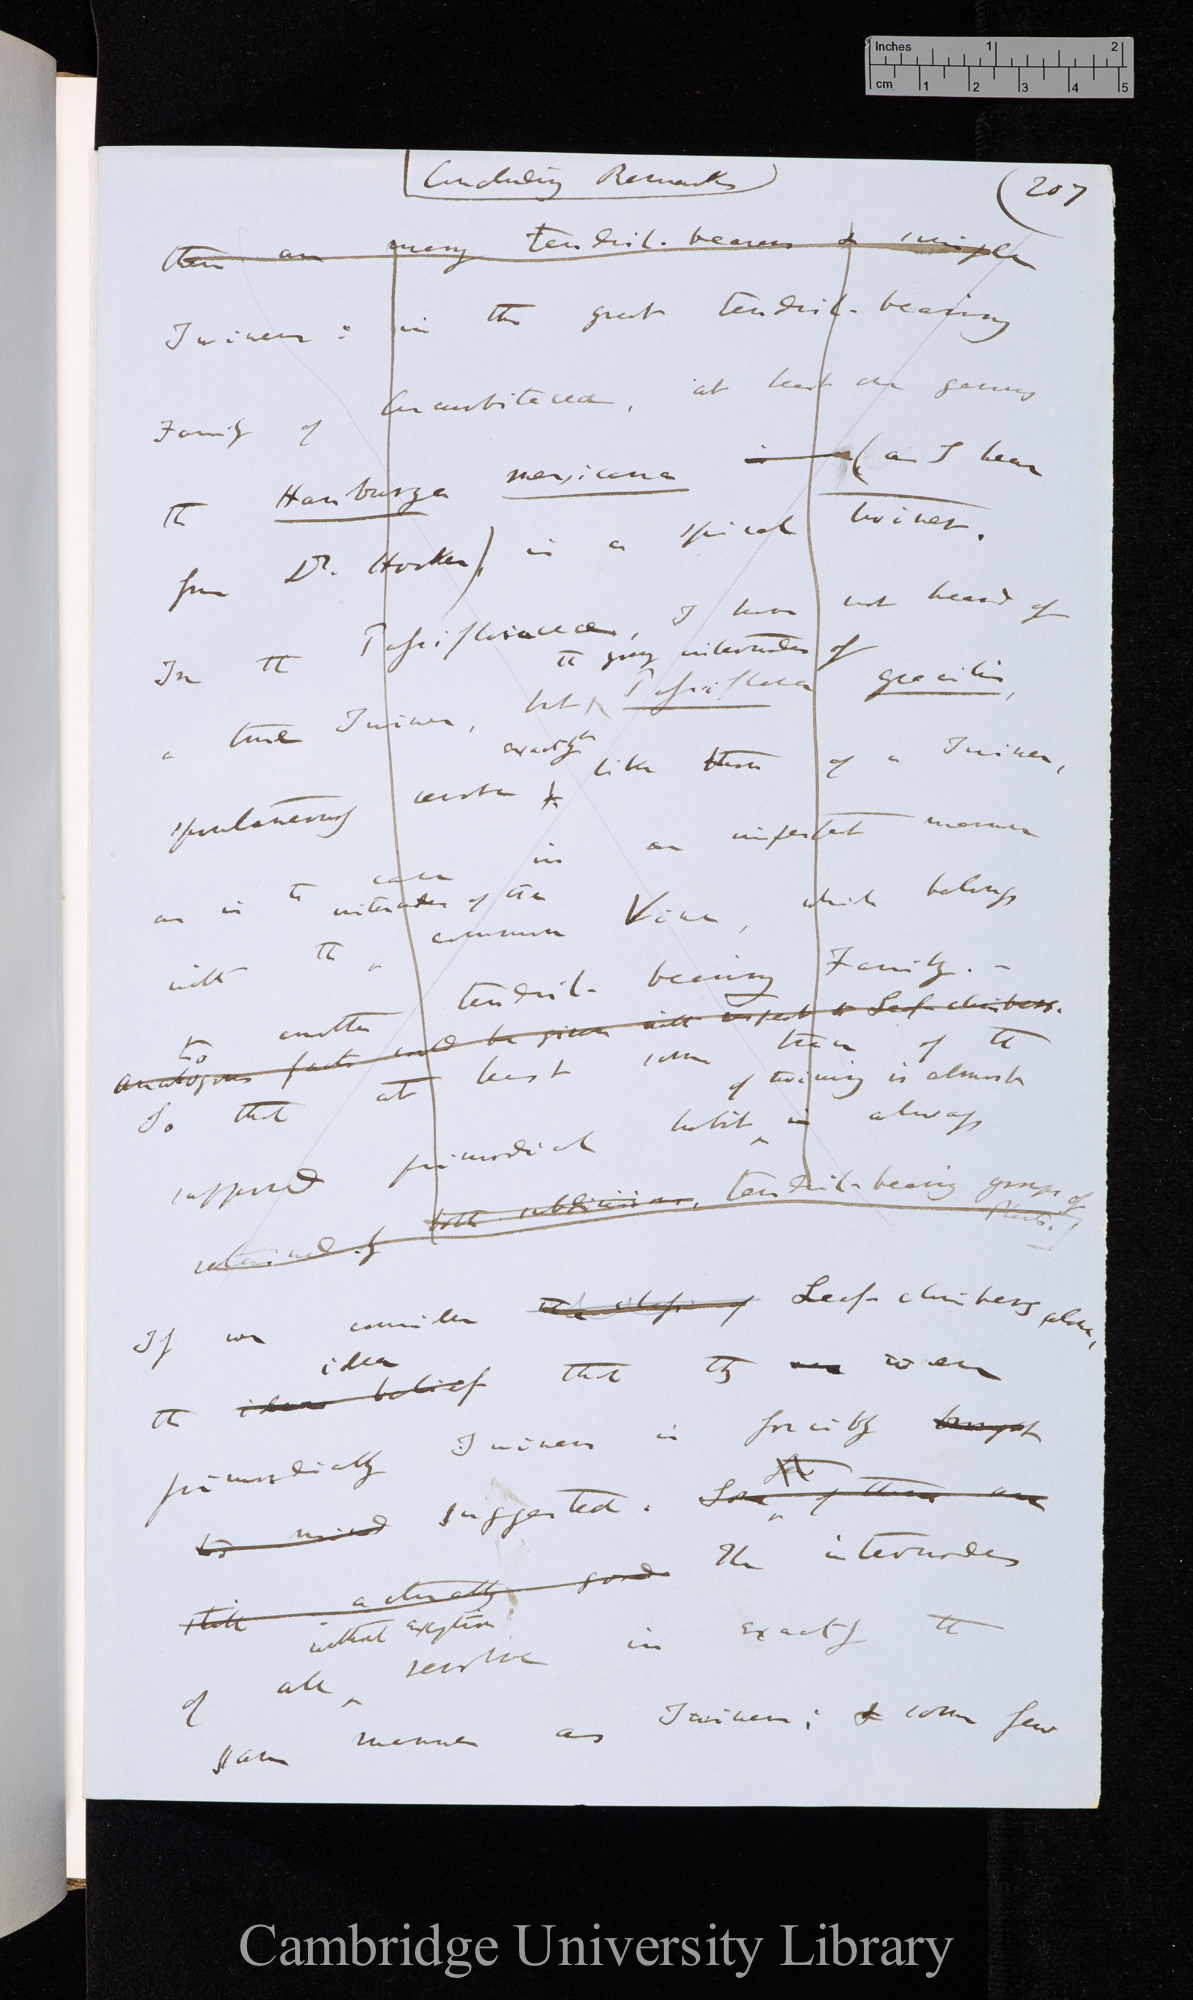 Inches 1 2
cm 1 2 3 4 5
Concluding Remarks
207
there are many tendril-bearers & simple
Twiners: in the great tendril-bearing
Family of Cucurbitaceæ, at least one genus
the Hanburya mexicana is (as I hear
from Dr. Hooker) is a spiral twiner.
In the Passifloraceæ, I have not heard of
the young internodes of
a true Twiner, but Passiflora gracilis,
exactly
spontaneously revolve & like those of a Twiner,
as in the case in an imperfect manner
internodes of the
with the common Vine, which belongs
to another tendril-bearing Family. —
analogous facts could be given with respect to Leaf-climbers.
So that at least some trace of the
of twining is almost
supposed primordial habit is always
retained by both subdivisions, tendril-bearing groups of
Plants.
If we consider Leaf-climbers alone,
idea
the idea belief that they were
primordially Twiners is forcibly brought
to mind suggested. Some of these are
still actually good The internodes
without exception
of all revolve in exactly the
same manner as Twiners; & some few
Cambridge University Library